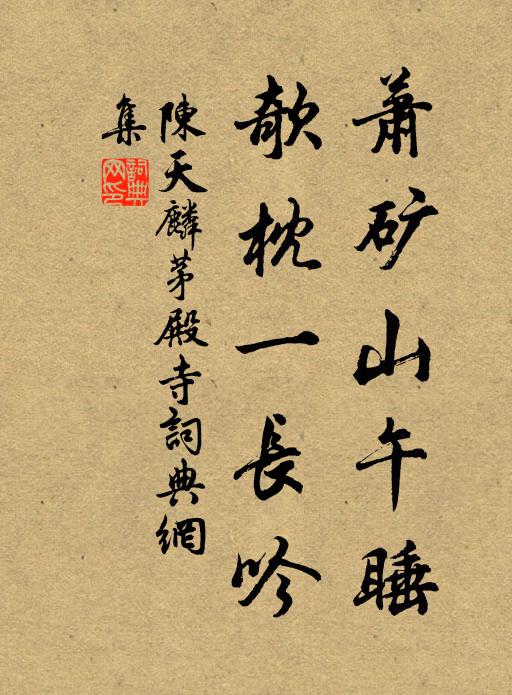 蕭矿山午睡
欹枕一長吟
陳天麟茅殿寺詞典網
集
詞典
网印